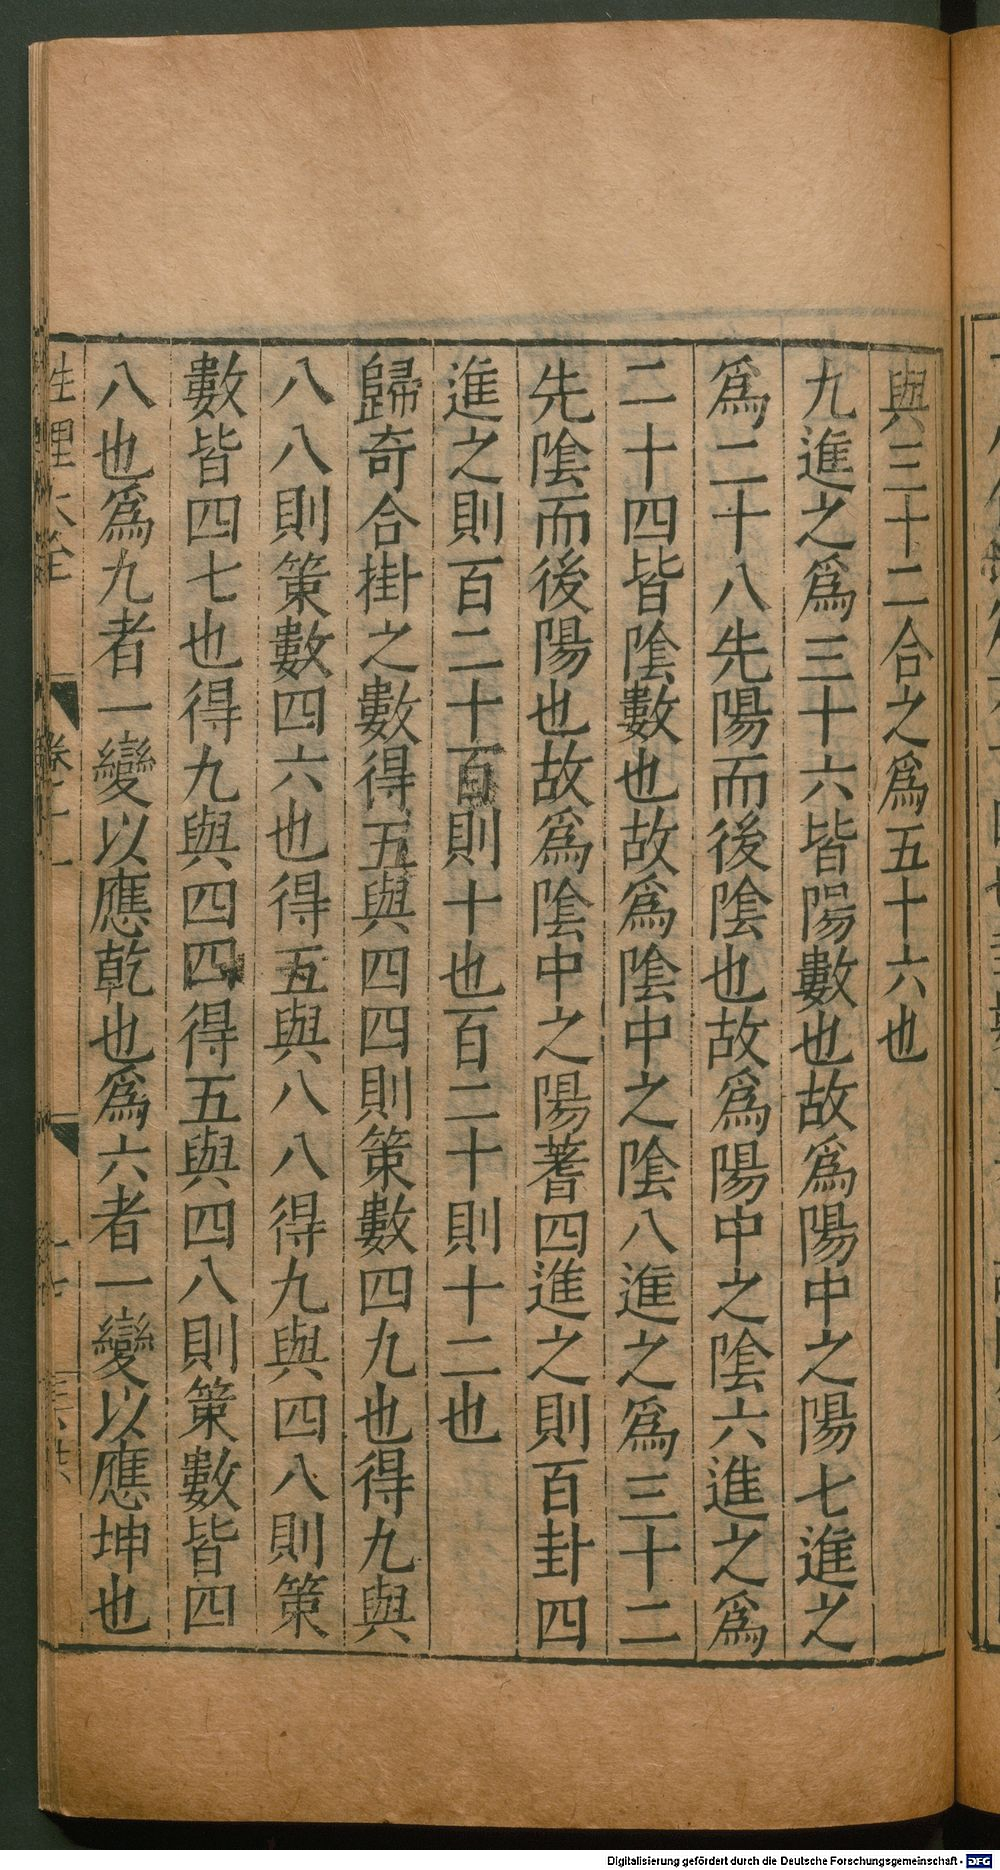 與三十二合之爲五十六也
九進之爲三十六皆陽數也故爲陽中之陽七進之
爲二十八先陽而後陰也故爲陽中之陰六進之爲
二十四皆陰數也故爲陰中之陰八進之爲三十二
先陰而後陽也故爲陰中之陽蓍四進之則百卦四
進之則百二十百則十也百二十則十二也
歸奇合掛之數得五與四四則策數四九也得九與
八八則策數四六也得五與八八得九與四八則策
數皆四七也得九與四四得五與四八則策數皆四
八也爲九者一變以應乾也爲六者一變以應坤也
性理大全
Digitalisierung gefördert durch die Deutsche Forschungsgemeinschaft - DFG